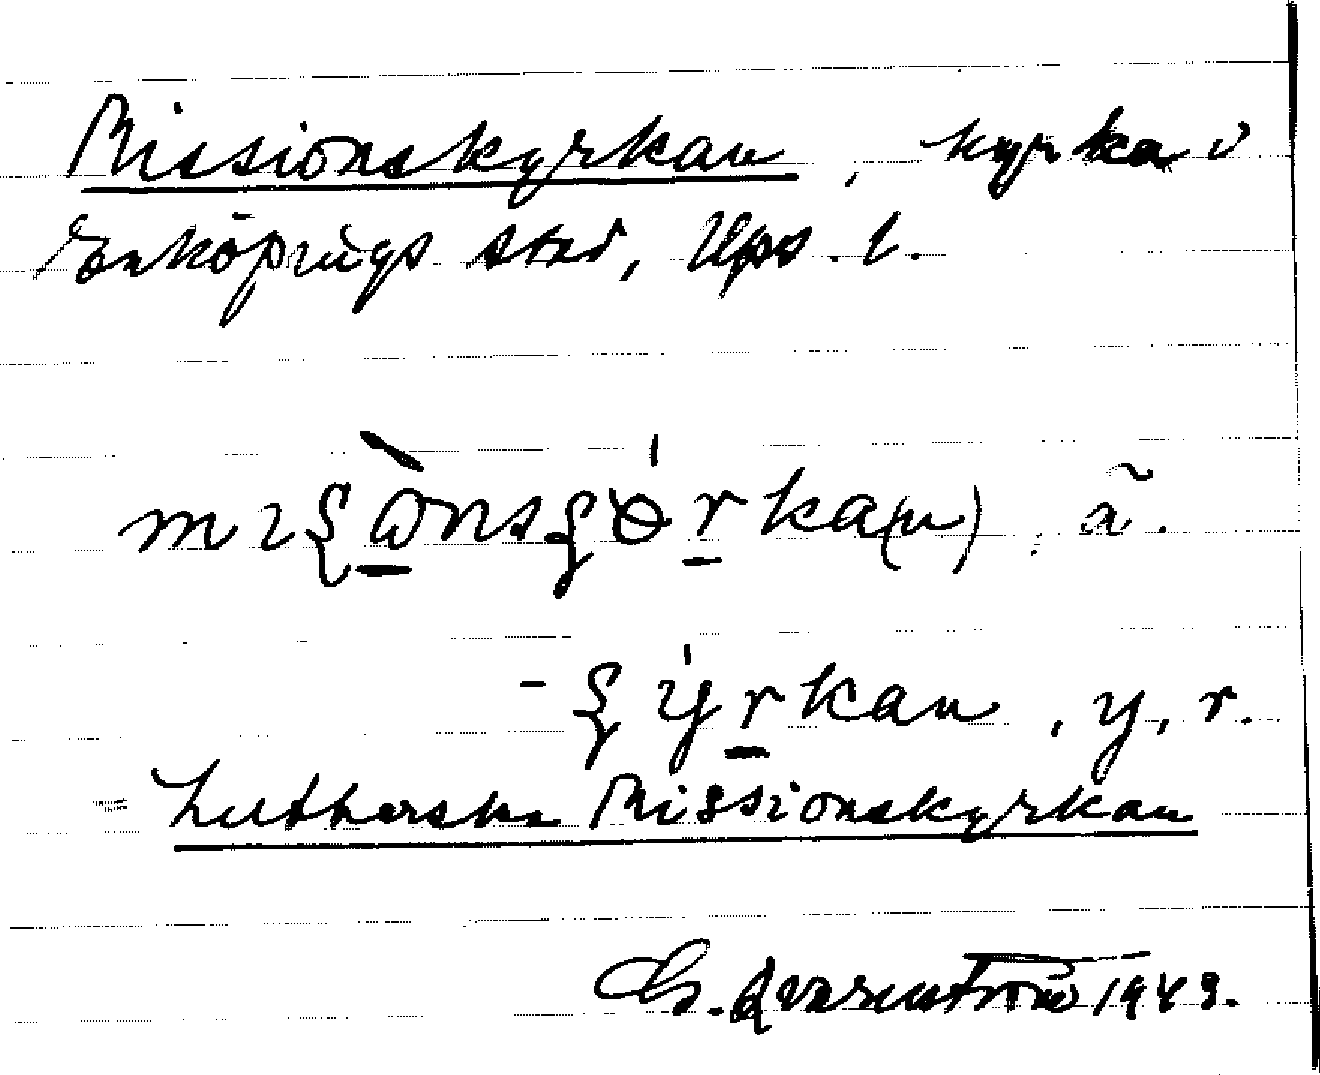 Missionskyrkan, kyrka i
Enköpings stad, Ups. l.
ka(n), ã.
kan, y, r.
= Lutherska Missionskyrkan
Qvarnström 1943.